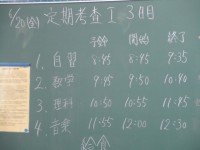 6/20(金) 定期考査Ⅰ 3日目
予鈴 開始 終了
1. 自習 8:45 8:45 9:35
2. 数学 9:45 9:50 10:40
3. 理科 10:50 10:55 11:45
4. 音楽 11:55 12:00 12:30